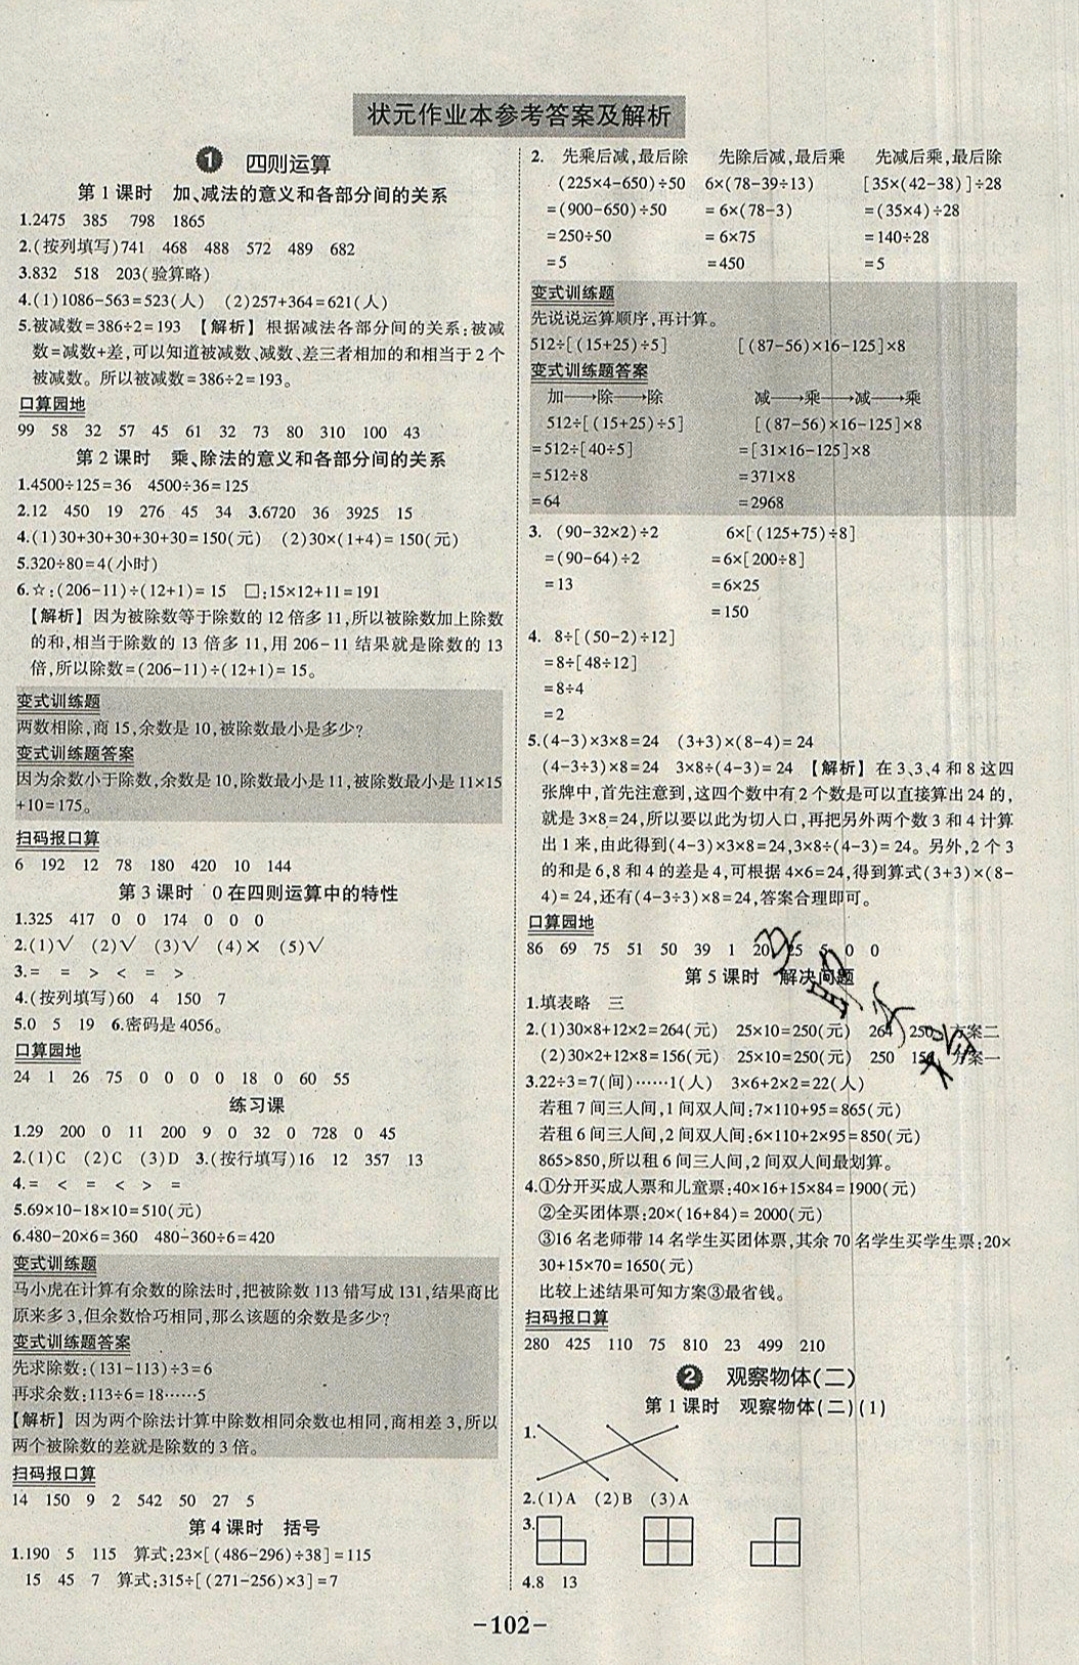 状元作业本参考答案及解析
1 四则运算
第1课时 加、减法的意义和各部分间的关系
1.2475 385 798 1865
2.(按列填写)741 468 488 572 489 682
3.832 518 203(验算略)
4.(1)1086-563=523(人) (2)257+364=621(人)
5.被减数=386÷2=193 【解析】根据减法各部分间的关系:被减
数=减数+差,可以知道被减数、减数、差三者相加的和相当于2个
被减数。所以被减数=386÷2=193。
口算园地
99 58 32 57 45 61 32 73 80 310 100 43
第2课时 乘、除法的意义和各部分间的关系
1.4500÷125=36 4500÷36=125
2.12 450 19 276 45 34 3.6720 36 3925 15
4.(1)30+30+30+30+30=150(元) (2)30×(1+4)=150(元)
5.320÷80=4(小时)
6.☆:(206-11)÷(12+1)=15 □:15×12+11=191
【解析】因为被除数等于除数的12倍多11,所以被除数加上除数
的和,相当于除数的13倍多11,用206-11结果就是除数的13
倍,所以除数=(206-11)÷(12+1)=15。
变式训练题
两数相除,商15,余数是10,被除数最小是多少?
变式训练题答案
因为余数小于除数,余数是10,除数最小是11,被除数最小是11×15
+10=175。
扫码报口算
6 192 12 78 180 420 10 144
第3课时 0在四则运算中的特性
1.325 417 0 0 174 0 0 0
2.(1)√ (2)√ (3)√ (4)× (5)√
3.= = > < = >
4.(按列填写)60 4 150 7
5.0 5 19 6.密码是4056。
口算园地
24 1 26 75 0 0 0 0 18 0 60 55
练习课
1.29 200 0 11 200 9 0 32 0 728 0 45
2.(1)C (2)C (3)D 3.(按行填写)16 12 357 13
4.= < = < > =
5.69×10-18×10=510(元)
6.480-20×6=360 480-360÷6=420
变式训练题
马小虎在计算有余数的除法时,把被除数113错写成131,结果商比
原来多3,但余数恰巧相同,那么该题的余数是多少?
变式训练题答案
先求除数:(131-113)÷3=6
再求余数:113÷6=18……5
【解析】因为两个除法计算中除数相同余数也相同,商相差3,所以
两个被除数的差就是除数的3倍。
扫码报口算
14 150 9 2 542 50 27 5
第4课时 括号
1.190 5 115 算式:23×[(486-296)÷38]=115
15 45 7 算式:315÷[(271-256)×3]=7
2. 先乘后减,最后除 先除后减,最后乘 先减后乘,最后除
(225×4-650)÷50 6×(78-39÷13) [35×(42-38)]÷28
=(900-650)÷50 =6×(78-3) =(35×4)÷28
=250÷50 =6×75 =140÷28
=5 =450 =5
变式训练题
先说说运算顺序,再计算。
512÷[(15+25)÷5] [(87-56)×16-125]×8
变式训练题答案
加→除→除 减→乘→减→乘
512÷[(15+25)÷5] [(87-56)×16-125]×8
=512÷[40÷5] =[31×16-125]×8
=512÷8 =371×8
=64 =2968
3. (90-32×2)÷2 6×[(125+75)÷8]
=(90-64)÷2 =6×[200÷8]
=13 =6×25
=150
4. 8÷[(50-2)÷12]
=8÷[48÷12]
=8÷4
=2
5.(4-3)×3×8=24 (3+3)×(8-4)=24
(4-3÷3)×8=24 3×8÷(4-3)=24 【解析】在3、3、4和8这四
张牌中,首先注意到,这四个数中有2个数是可以直接算出24的,
就是3×8=24,所以要以此为切入口,再把另外两个数3和4计算
出1来,由此得到(4-3)×3×8=24,3×8÷(4-3)=24。另外,2个3
的和是6,8和4的差是4,可根据4×6=24,得到算式(3+3)×(8-
4)=24,还有(4-3÷3)×8=24,答案合理即可。
口算园地
86 69 75 51 50 39 1 20 25 5 0 0
第5课时 解决问题
1.填表略 三
2.(1)30×8+12×2=264(元) 25×10=250(元) 264 250 方案二
(2)30×2+12×8=156(元) 25×10=250(元) 250 156 方案一
3.22÷3=7(间)……1(人) 3×6+2×2=22(人)
若租7间三人间,1间双人间:7×110+95=865(元)
若租6间三人间,2间双人间:6×110+2×95=850(元)
865>850,所以租6间三人间,2间双人间最划算。
4.①分开买成人票和儿童票:40×16+15×84=1900(元)
②全买团体票:20×(16+84)=2000(元)
③16名老师带14名学生买团体票,其余70名学生买学生票:20×
30+15×70=1650(元)
比较上述结果可知方案③最省钱。
扫码报口算
280 425 110 75 810 23 499 210
2 观察物体(二)
第1课时 观察物体(二)(1)
1.
2.(1)A (2)B (3)A
3.
4.8 13
-102-